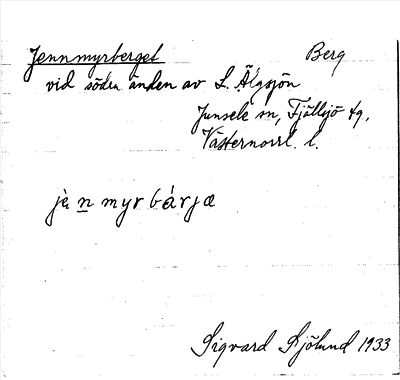 Jennmyrberget Berg
vid södra änden av L. Älgsjön
Junsele sn, Fjällsjö tg.
Västernorrl. l.
jà n myr bárjæ
Sigvard Sjölund 1933